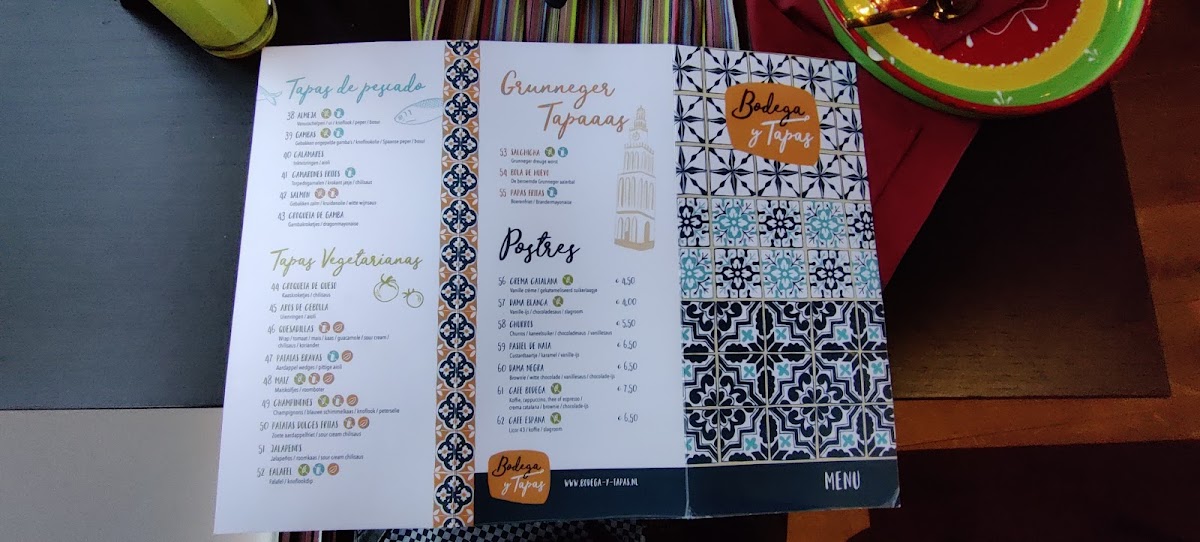 Tapas de pescado
38 ALMEJA
39 GAMBAS
Gebakken ongepelde gamba's / knoflookolie / Spaanse peper / boter
40 CALAMARES
Inktvisringen / aioli
41 GAMARONES FRITES
Torpedogarnalen / krokant jasje / chilisaus
42 SALMON
Gebakken zalm / kruidenolie / witte wijnsaus
43 CROQUETA DE GAMBA
Garnaalkroketjes / dragonmayonaise
Tapas Vegetarianas
44 CROQUETA DE QUESO
Kaaskroketjes / chilisaus
45 AROS DE CEBOLLA
Uienringen / aioli
46 QUESADILLAS
Wrap / tomaat / mais / kaas / guacamole / sour cream /
chilisaus / koriander
47 PATATAS BRAVAS
Aardappel wedges / pittige aioli
48 MAIZ
Maiskolfjes / roomboter
49 CHAMPINONES
Champignons / blauwe schimmelkaas / knoflook / peterselie
50 PATATAS DULCES FRITAS
Zoete aardappelfriet / sour cream chilisaus
51 JALAPENOS
Jalapeños / roomkaas / sour cream / chilisaus
52 FALAFEL
Falafel / knoflookdip
Grunneger
Tapaaas
53 SALCHICHA
Grunneger dreuge worst
54 BOLA DE HUEVO
De beroemde Grunneger eierbal
55 PAPAS FRITAS
Boerenfriet / Boandermayonaise
Postres
56 CREMA CATALANA € 4,50
Vanille crème / gekarameliseerd suikerlaagje
57 DAMA BLANCA € 4,00
Vanille-ijs / chocoladesaus / slagroom
58 CHURROS € 5,50
Churros / kaneelsuiker / chocoladesaus / vanillesaus
59 PASTEL DE NATA € 6,50
Custardtaartje / karamel / vanille-ijs
60 DAMA NEGRA € 6,50
Brownie / witte chocolade / vanillesaus / chocolade-ijs
61 CAFE BODEGA € 7,50
Koffie, cappuccino, thee of espresso /
crema catalana / brownie / chocolade-ijs
62 CAFE ESPANA € 6,50
Licor 43 / koffie / slagroom
Bodega
y Tapas
WWW.BODEGA-Y-TAPAS.NL
Bodega
y Tapas
MENU